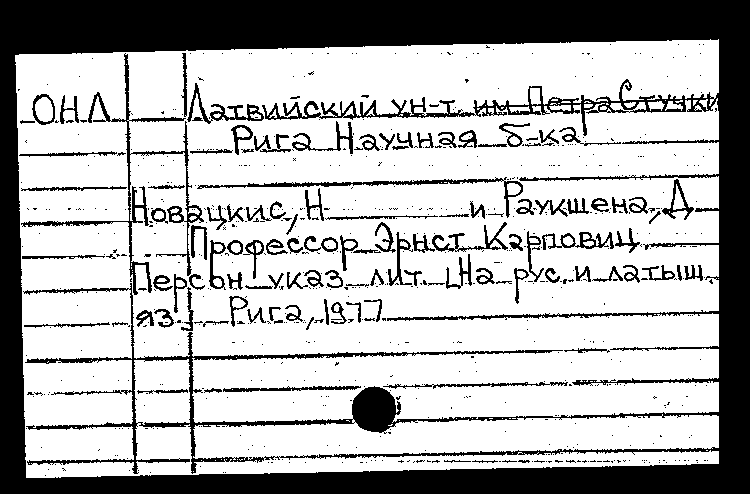 ОНЛ Латвийский ун-т им Петра Стучки
Рига Научная б-ка
Новацкис, Н и Раукшена, Д.
Профессор Эрнст Карповиц.
Персон указ лит. [На рус. и латыш.
яз.] Рига, 1977